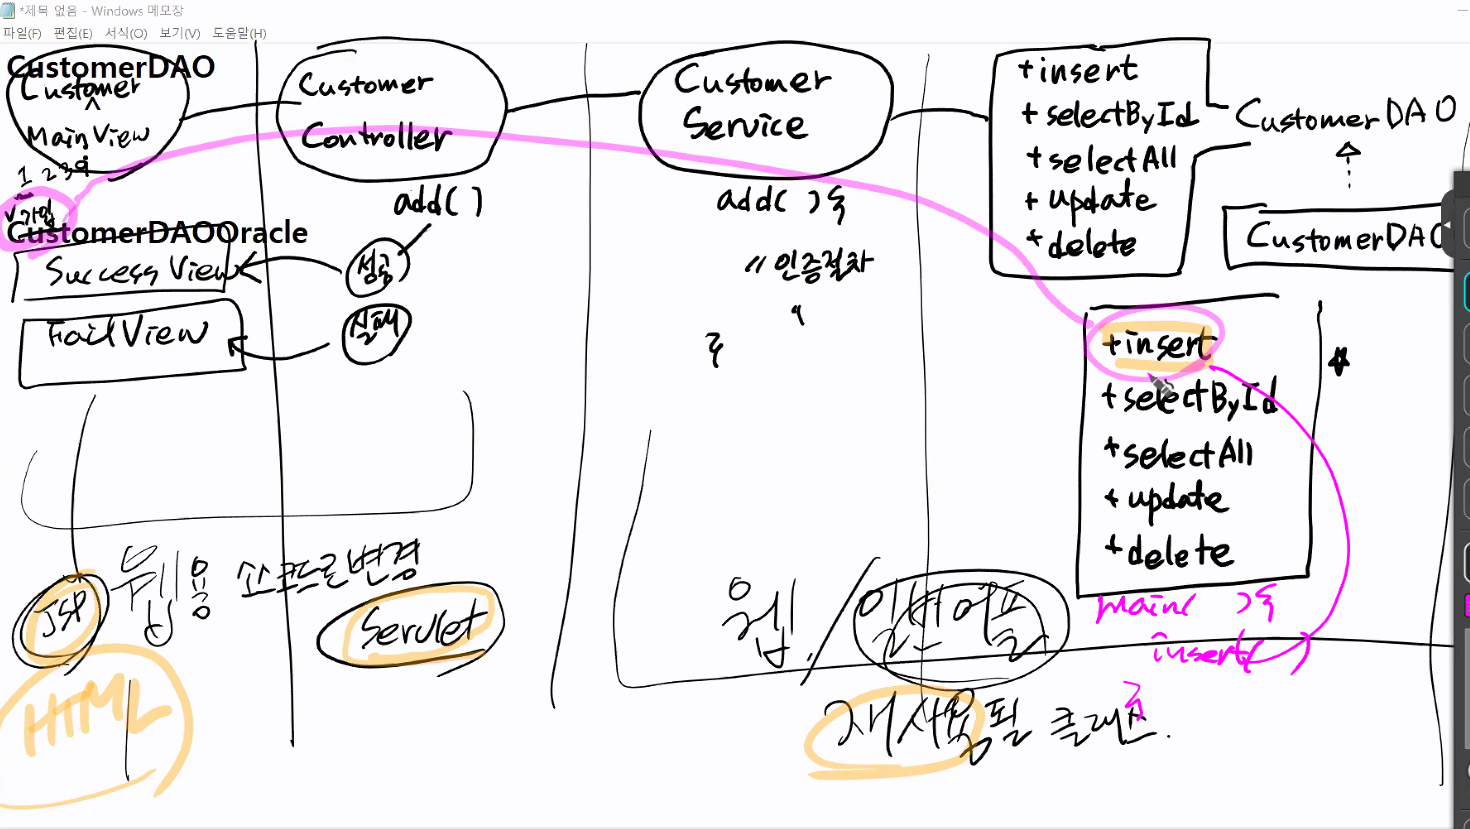 *제목 없음 - Windows 메모장
파일(F) 편집(E) 서식(O) 보기(V) 도움말(H)
CustomerDAO
Customer
MainView
1 2 3 9
가입
CustomerDAOOracle
Success View
Fail View
Customer
Controller
add( )
성공
실패
Customer
Service
add( ){
// 인증절차
"
}
+insert
+selectById
+selectAll
+update
+delete
CustomerDAO
CustomerDAO
+insert
+selectById
+selectAll
+update
+delete
main( ){
insert( )
}
웹용 소스코드로 변경
JSP
Servlet
HTML
웹 / 일반어플
재사용될 클래스.